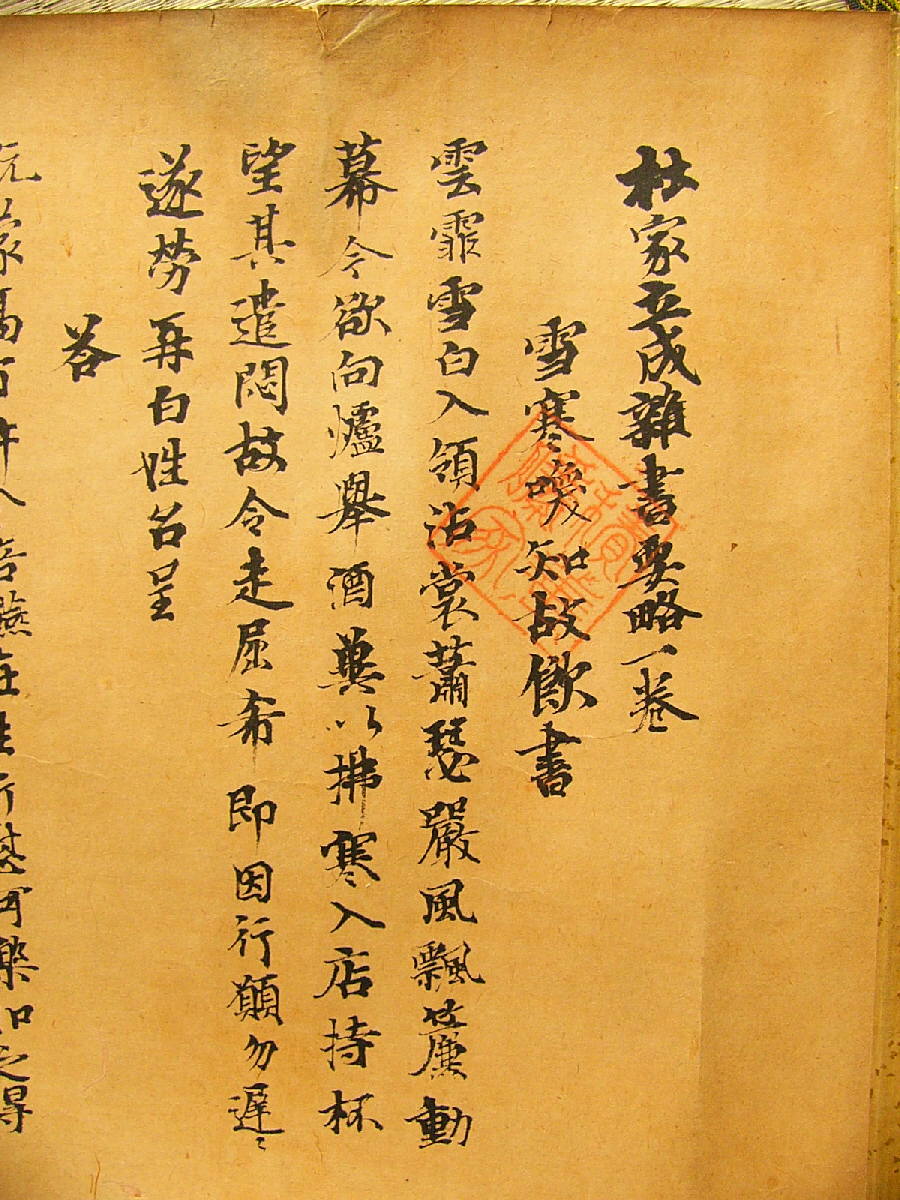 杜家立成雜書要略一卷
雪寒喚知故飲書
雲霏雪白入領沾裳蕭瑟嚴風飄簾動
幕今欲向爐舉酒興以拂寒入店持杯
望其遣悶故令走屈希即因行願勿遲〻
遂勞再白姓名呈
荅